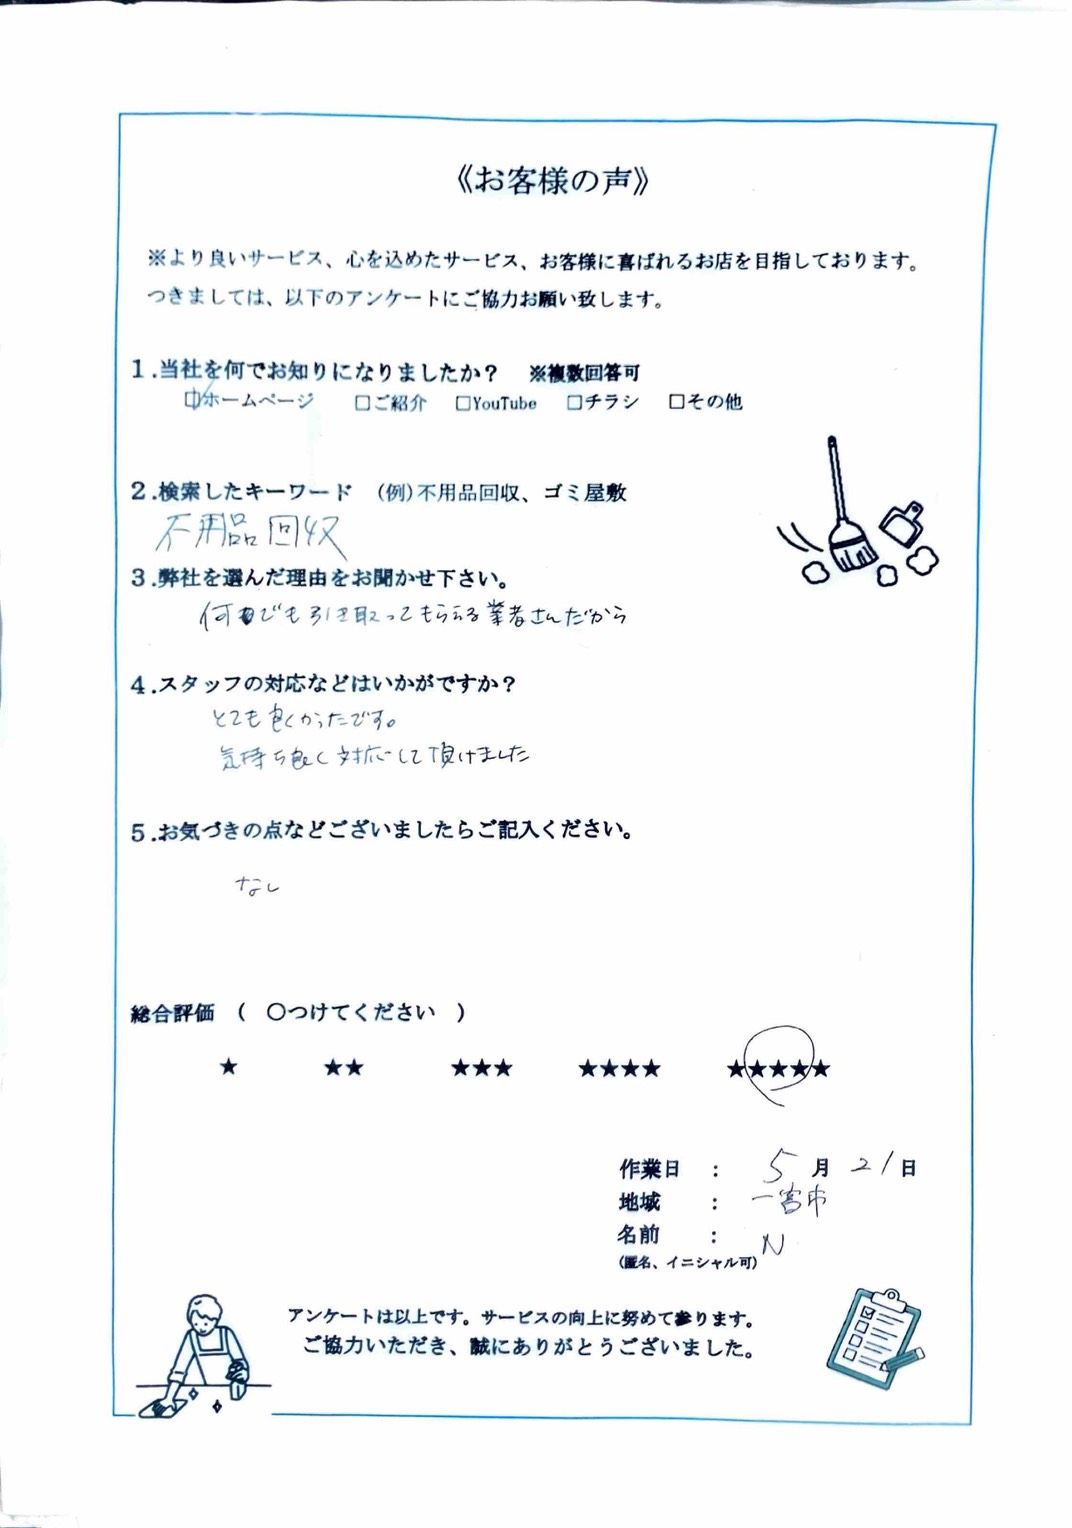 《お客様の声》
※より良いサービス、心を込めたサービス、お客様に喜ばれるお店を目指しております。
つきましては、以下のアンケートにご協力お願い致します。
1.当社を何でお知りになりましたか？ ※複数回答可
☑ホームページ □ご紹介 □YouTube □チラシ □その他
2.検索したキーワード (例)不用品回収、ゴミ屋敷
不用品回収
3.弊社を選んだ理由をお聞かせ下さい。
何でも引き取ってもらえる業者さんだから
4.スタッフの対応などはいかがですか？
とても良くかったです。
気持ち良く対応して頂けました
5.お気づきの点などございましたらご記入ください。
なし
総合評価 ( 〇つけてください )
★ ★★ ★★★ ★★★★ ★★★★★
作業日 : 5月21日
地域 : 一宮市
名前 : N
(匿名、イニシャル可)
アンケートは以上です。サービスの向上に努めて参ります。
ご協力いただき、誠にありがとうございました。